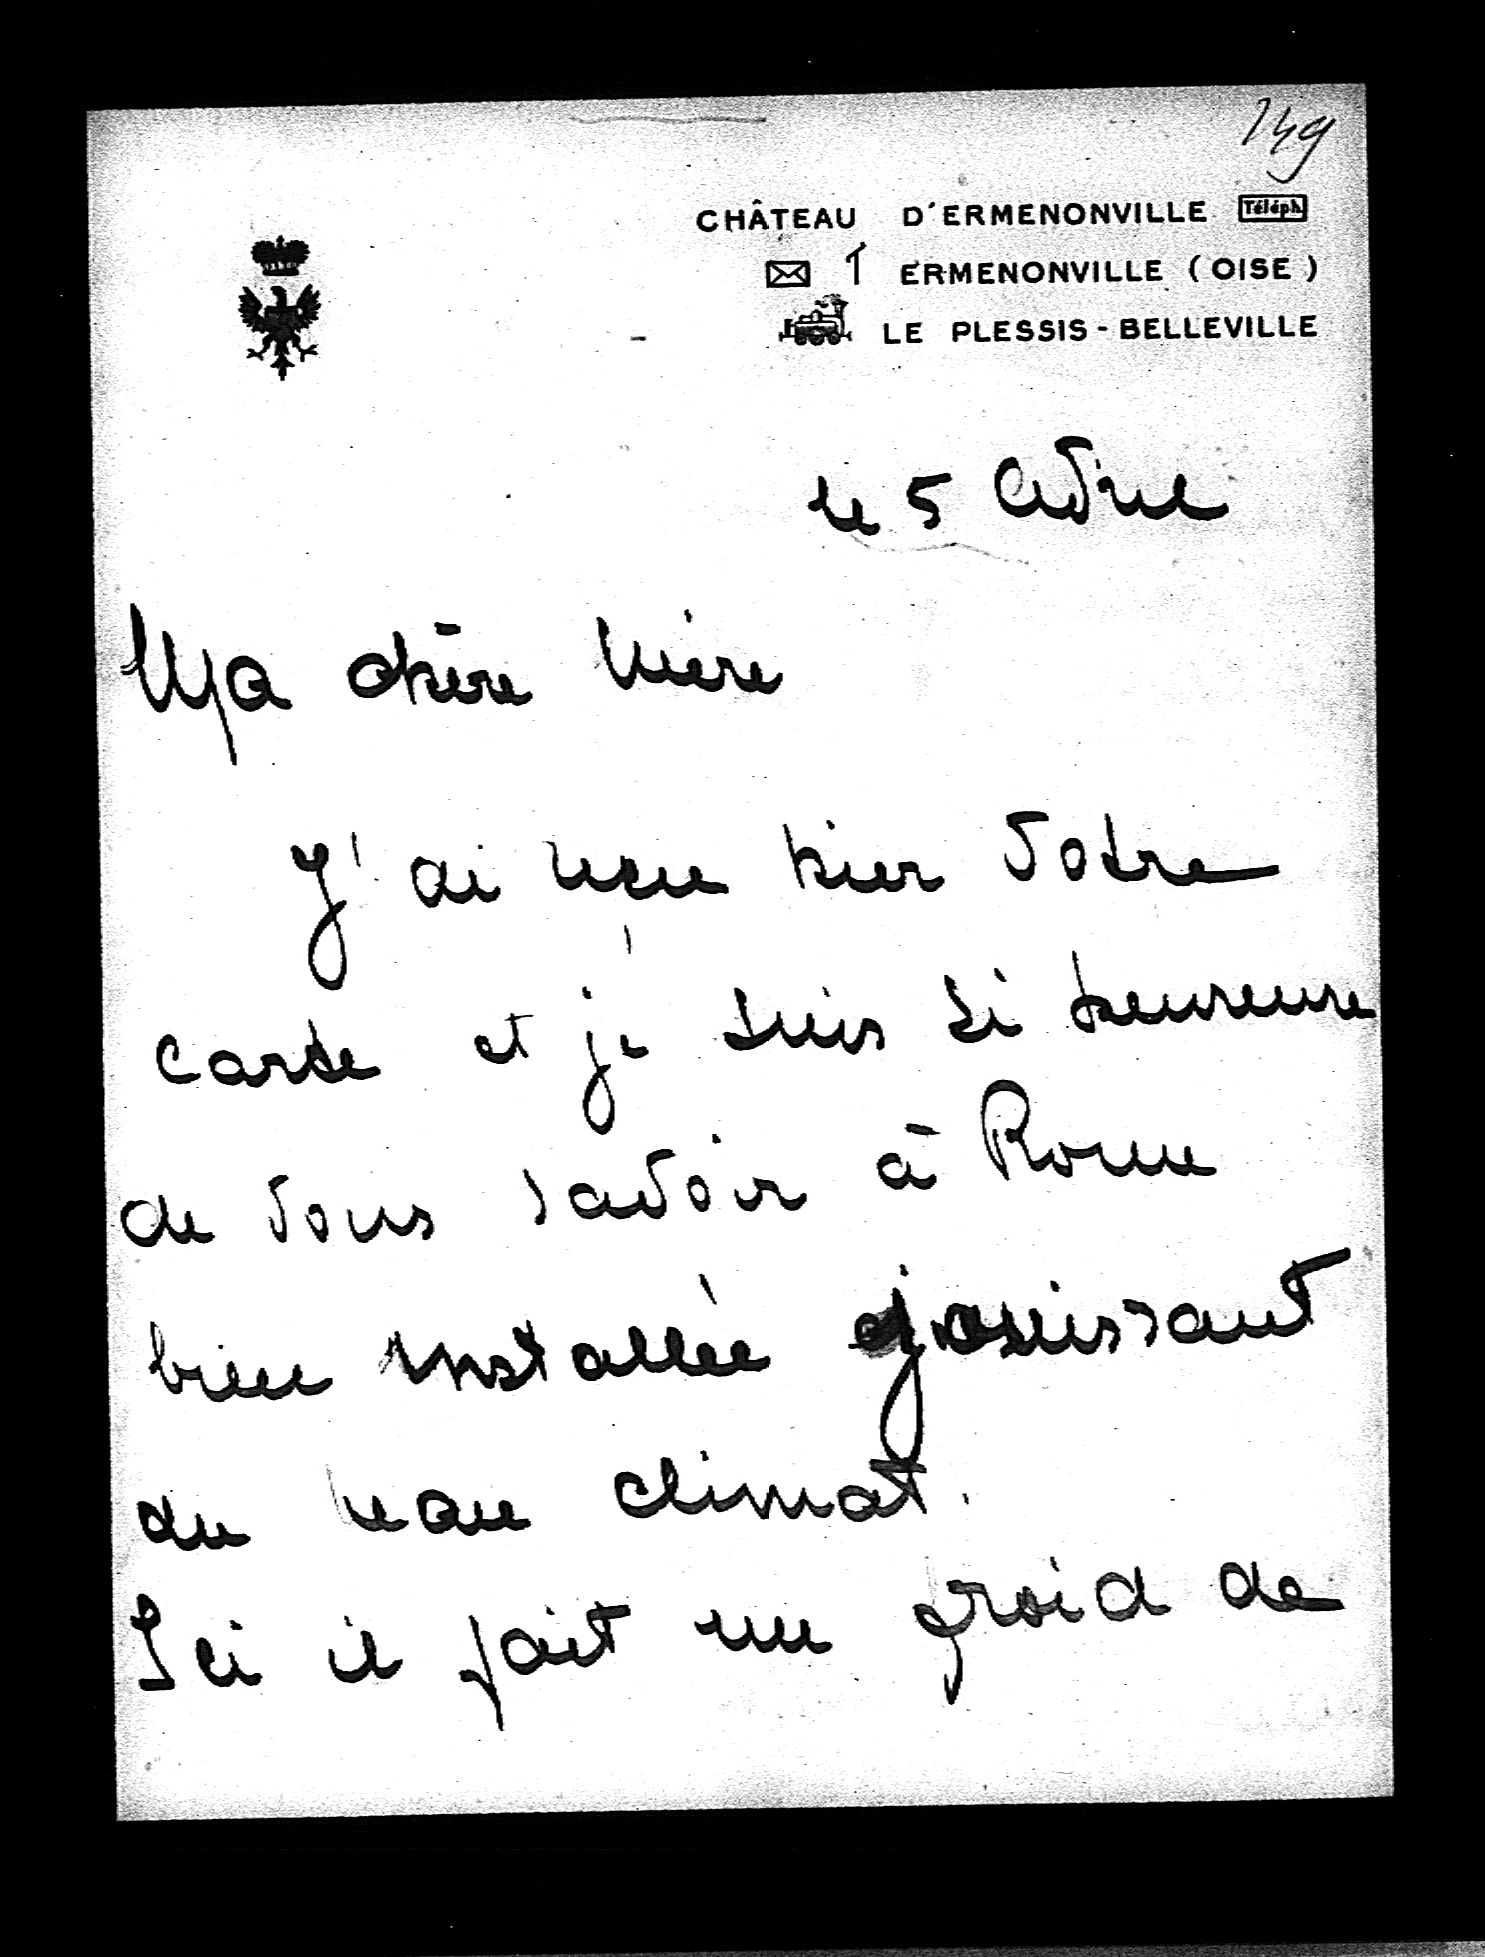 149
CHÂTEAU D'ERMENONVILLE Téléph.
ERMENONVILLE (OISE)
LE PLESSIS-BELLEVILLE
le 5 Avril
Ma chère Mère
J'ai reçu hier votre
carte et je suis si heureuse
de vous savoir à Rome
bien installée jouissant
du beau climat.
Ici il fait un froid de